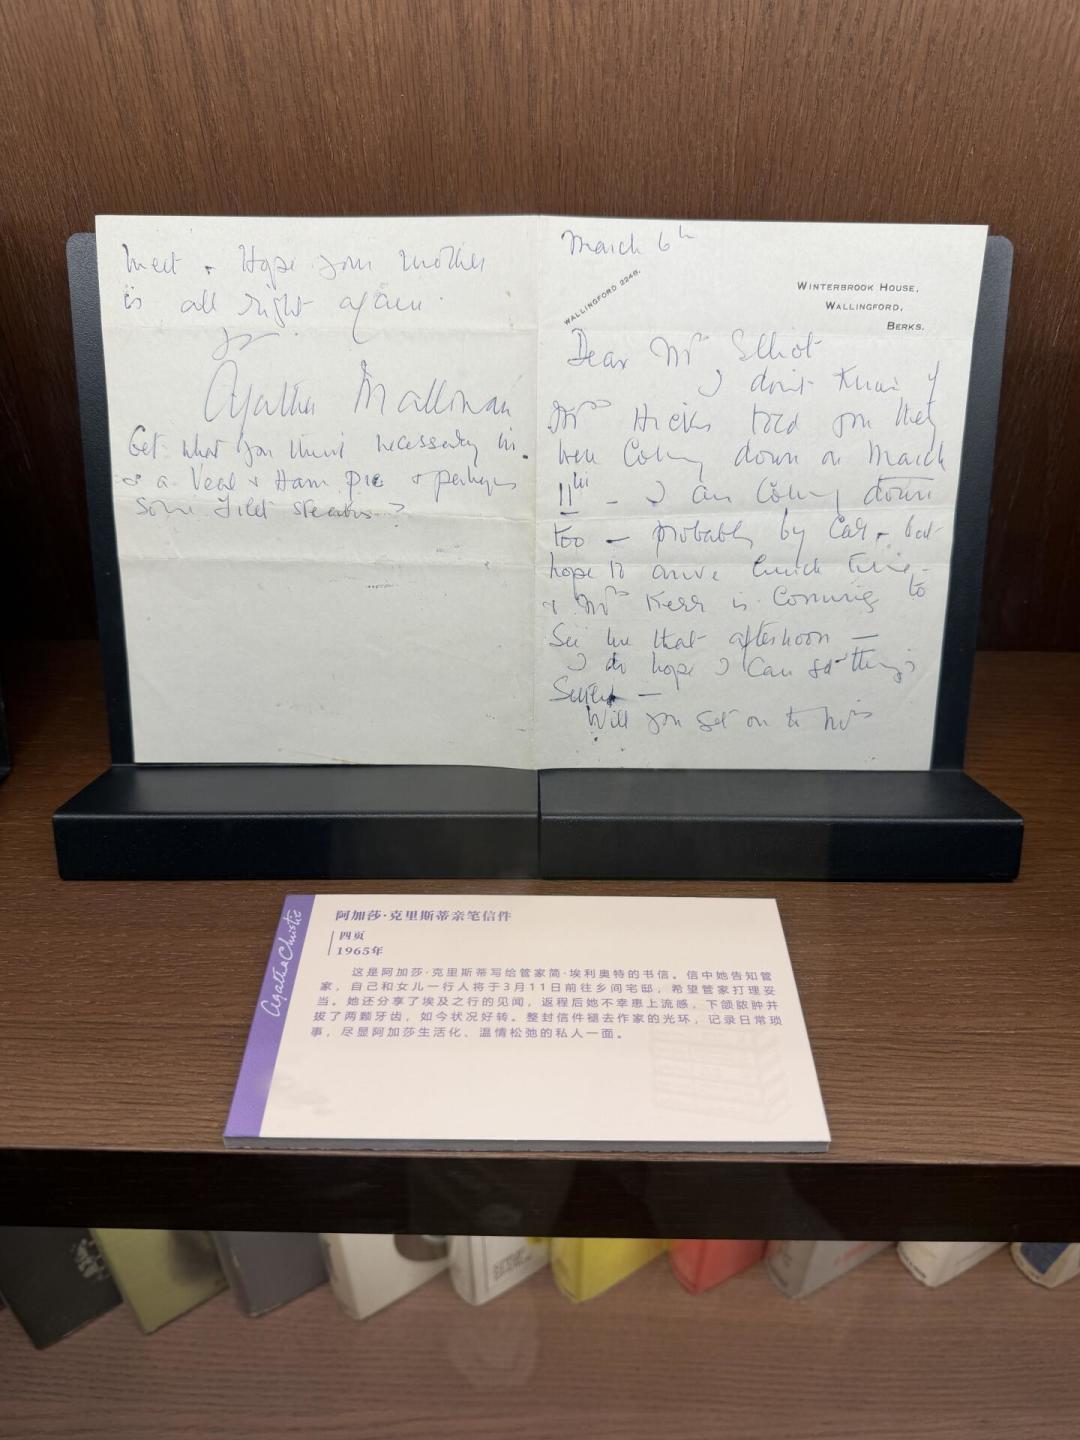 meet + Hope your mother
is all right again.
Yrs.
Agatha Mallowan
Get what you think necessary in.
+ a Veal + Ham pie + perhaps
some fillet steaks?
March 6th
WALLINGFORD 2248.
WINTERBROOK HOUSE,
WALLINGFORD,
BERKS.
Dear Mrs Elliot
I don't know if
Mrs Hicks told you they
were coming down on March
11th - I am coming down
too - probably by car, but
hope to arrive lunch time -
+ Mrs Kerr is coming to
see me that afternoon -
I do hope I can get things
-
Will you get on to Mrs
Agatha Christie
阿加莎·克里斯蒂亲笔信件
四页
1965年
这是阿加莎·克里斯蒂写给管家简·埃利奥特的书信。信中她告知管
家，自己和女儿一行人将于3月11日前往乡间宅邸，希望管家打理妥
当。她还分享了埃及之行的见闻，返程后她不幸患上流感，下颌脓肿并
拔了两颗牙齿，如今状况好转。整封信件褪去作家的光环，记录日常琐
事，尽显阿加莎生活化、温情松弛的私人一面。